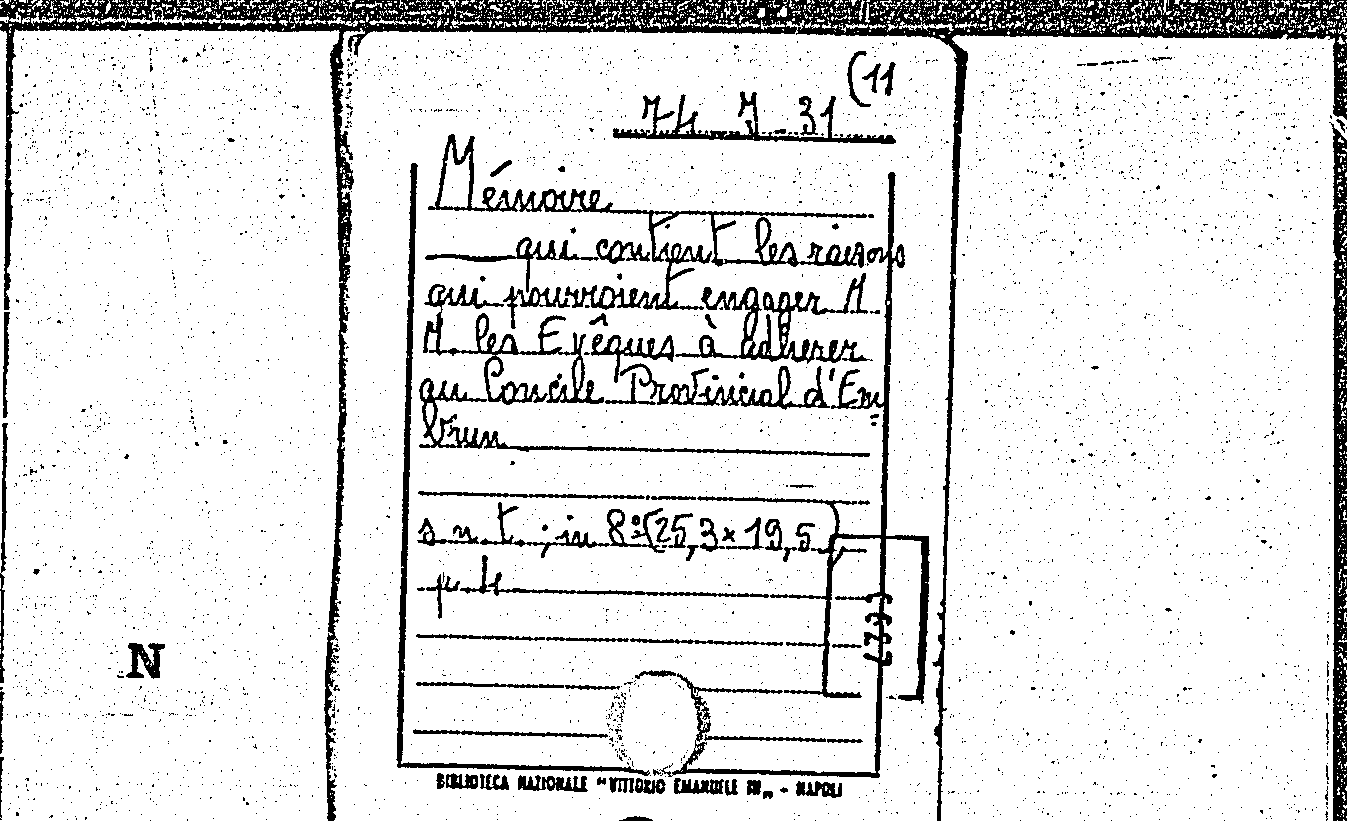 (11
74 7-31
Mémoire
qui contient les raisons
qui pourroient engager M
M. les Evêques à adherer
au Concile Provincial d'Em=
brun
s. n. t. ; in 8º (25,3 x 19,5)
N
BIBLIOTECA NAZIONALE "VITTORIO EMANUELE III„ - NAPOLI